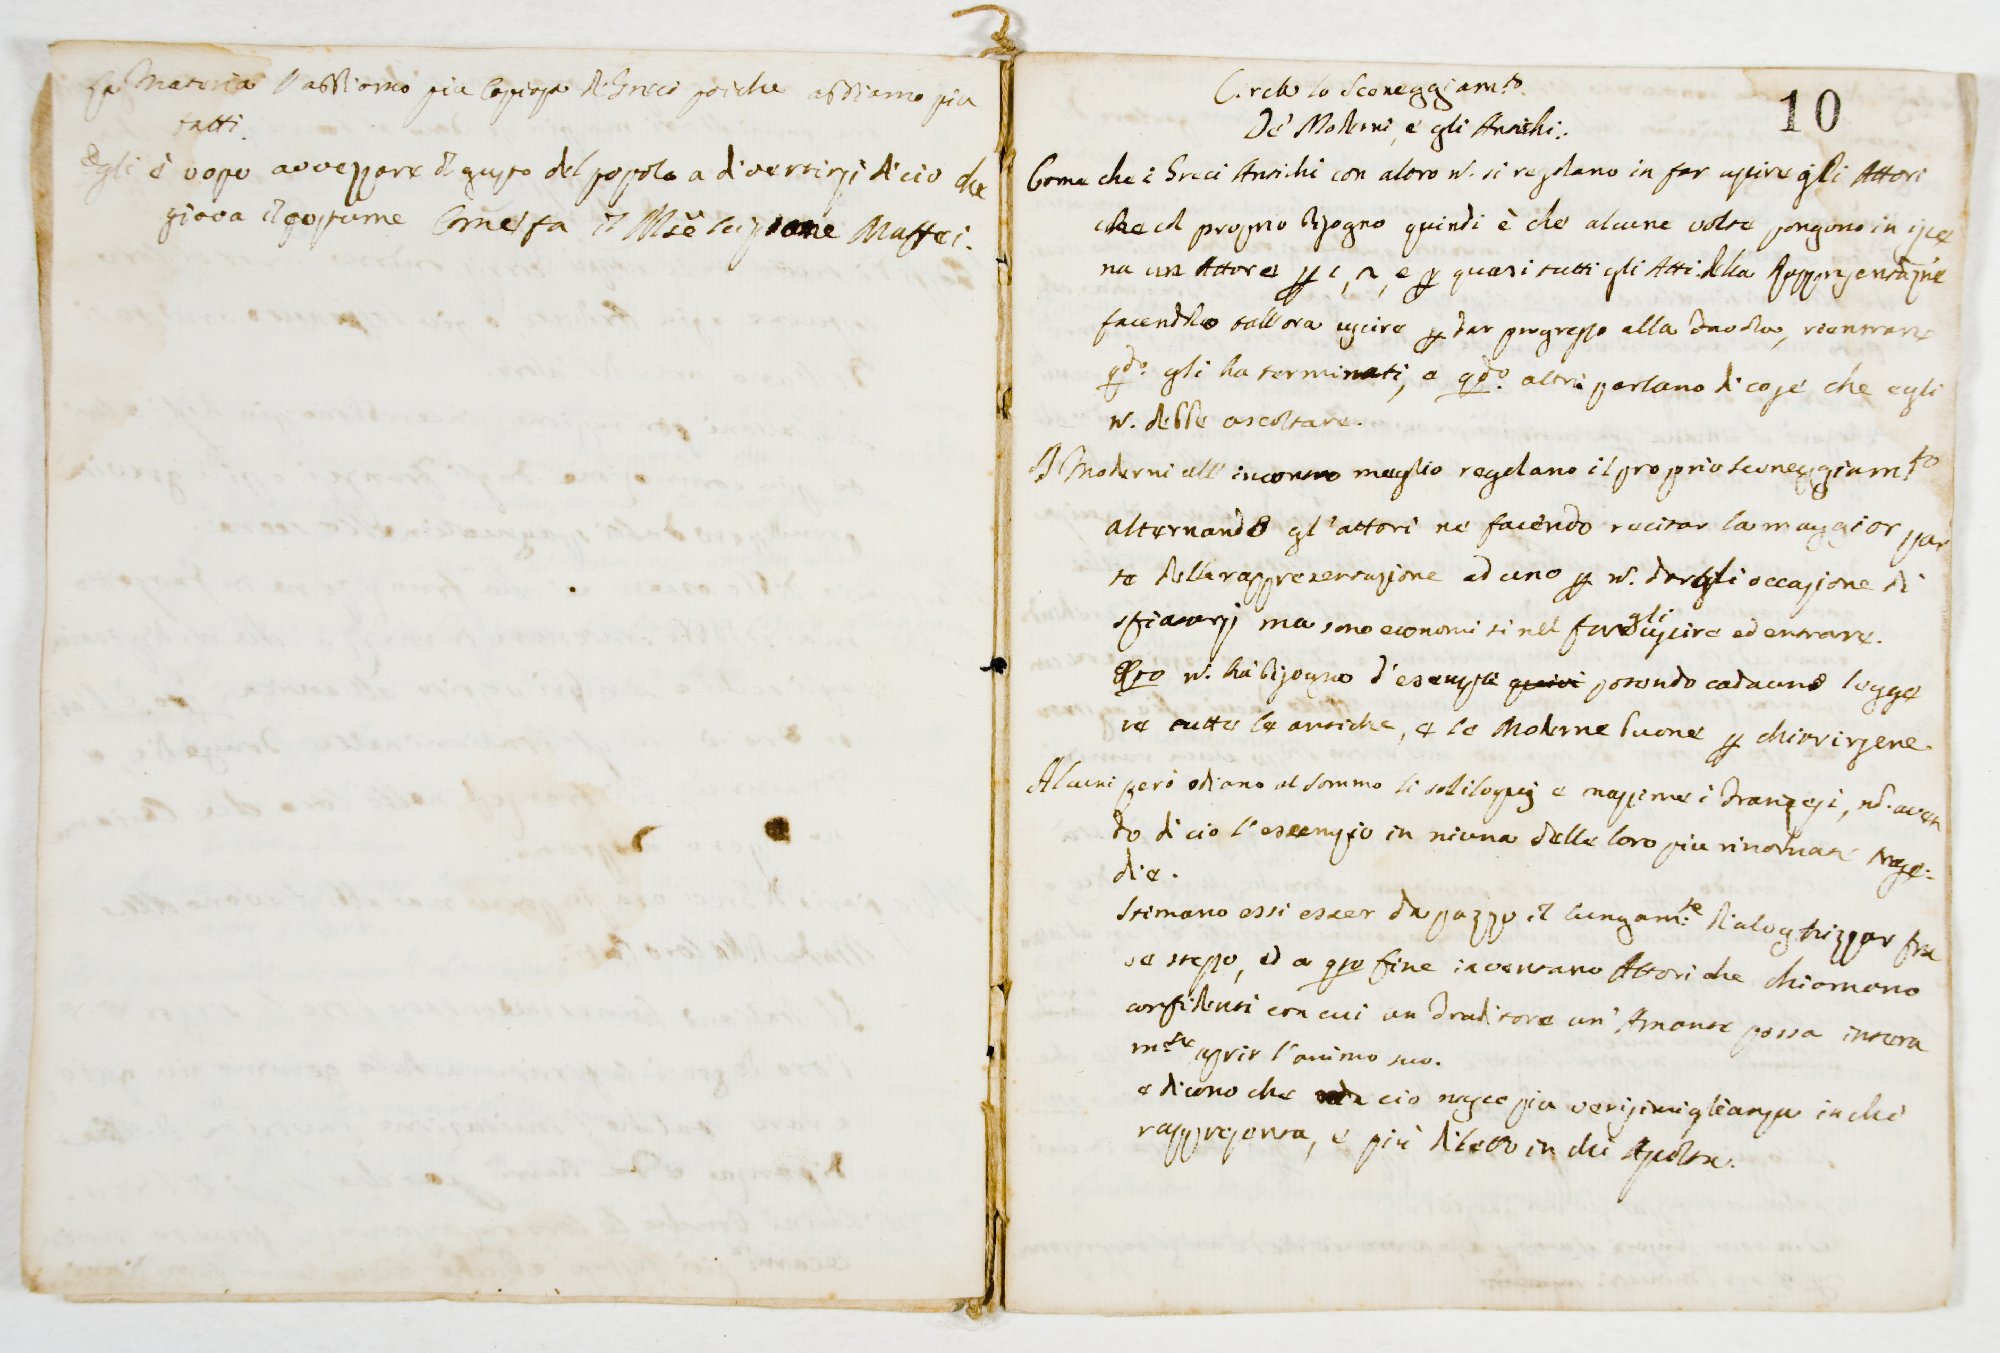 La Materia l'abbiamo piu copiosa de Greci poiche abbiamo piu
fatti.
Egli è uopo avvezzare il gusto del popolo a divertirsi di cio che
giova il costume come fa il Mse Scipione Maffei.
10
Circa lo Sceneggiam.to
De' Moderni, e gli Antichi.
Come che i Greci Antichi con altro n. si regolano in far uscire gli Attori
che col proprio bisogno quindi è che alcune volte pongono in isce
na un Attore p 1, 2, e p quasi tutti gli Atti della Rappresentazne
facendolo tall'ora uscire p dar progresso alla favola, rientrare
qdo. gli ha terminati, e qdo. altri parlano di cose che egli
n. debbe ascoltare.
I Moderni all'incontro meglio regolano il proprio sceneggiam.to
alternando gl'attori ne facendo recitar la maggior par
te della rappresentazione ad uno p n. dargli occasione di
sfiatarsi ma sono economisti nel fargli uscire ed entrare.
Qsto n. há bisogno d'esempli quivi potendo cadauno legge
re tutte le antiche, e le Moderne buone p chiarirsene.
Alcuni però odiano al sommo li soliloquj e massime i Franzesi, nō. aven
do di cio l'esempio in niuna delle loro piu rinomate trage:
die.
Stimano essi esser da pazzo il lungam.te dialoghizzar fra
se stesso, ed a qsto fine inventano Attori che chiamano
confidenti con cui un Traditore un' Amante possa intera
m.te aprir l'animo suo.
e dicono che cio nasce piu verisimiglianza in chi
rappresenta, e più diletto in chi Ascolta.